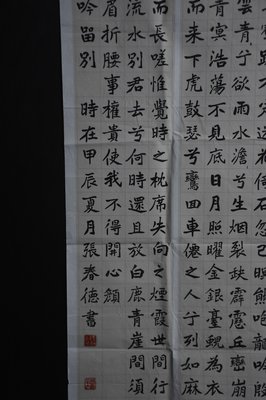 石忽已暝熊咆龍吟殷
雲青兮欲雨水澹兮生烟裂缺霹靂丘巒崩
青冥浩蕩不見底日月照曜金銀臺蜺為衣
而來下虎鼓瑟兮鸞回車僊之人兮列如麻
而長嗟惟覺時之枕席失向之煙霞世間行
流水別君去兮何時還且放白鹿青崖間須
眉折腰事權貴使我不得開心顏
吟留別 時在甲辰夏月張春德書